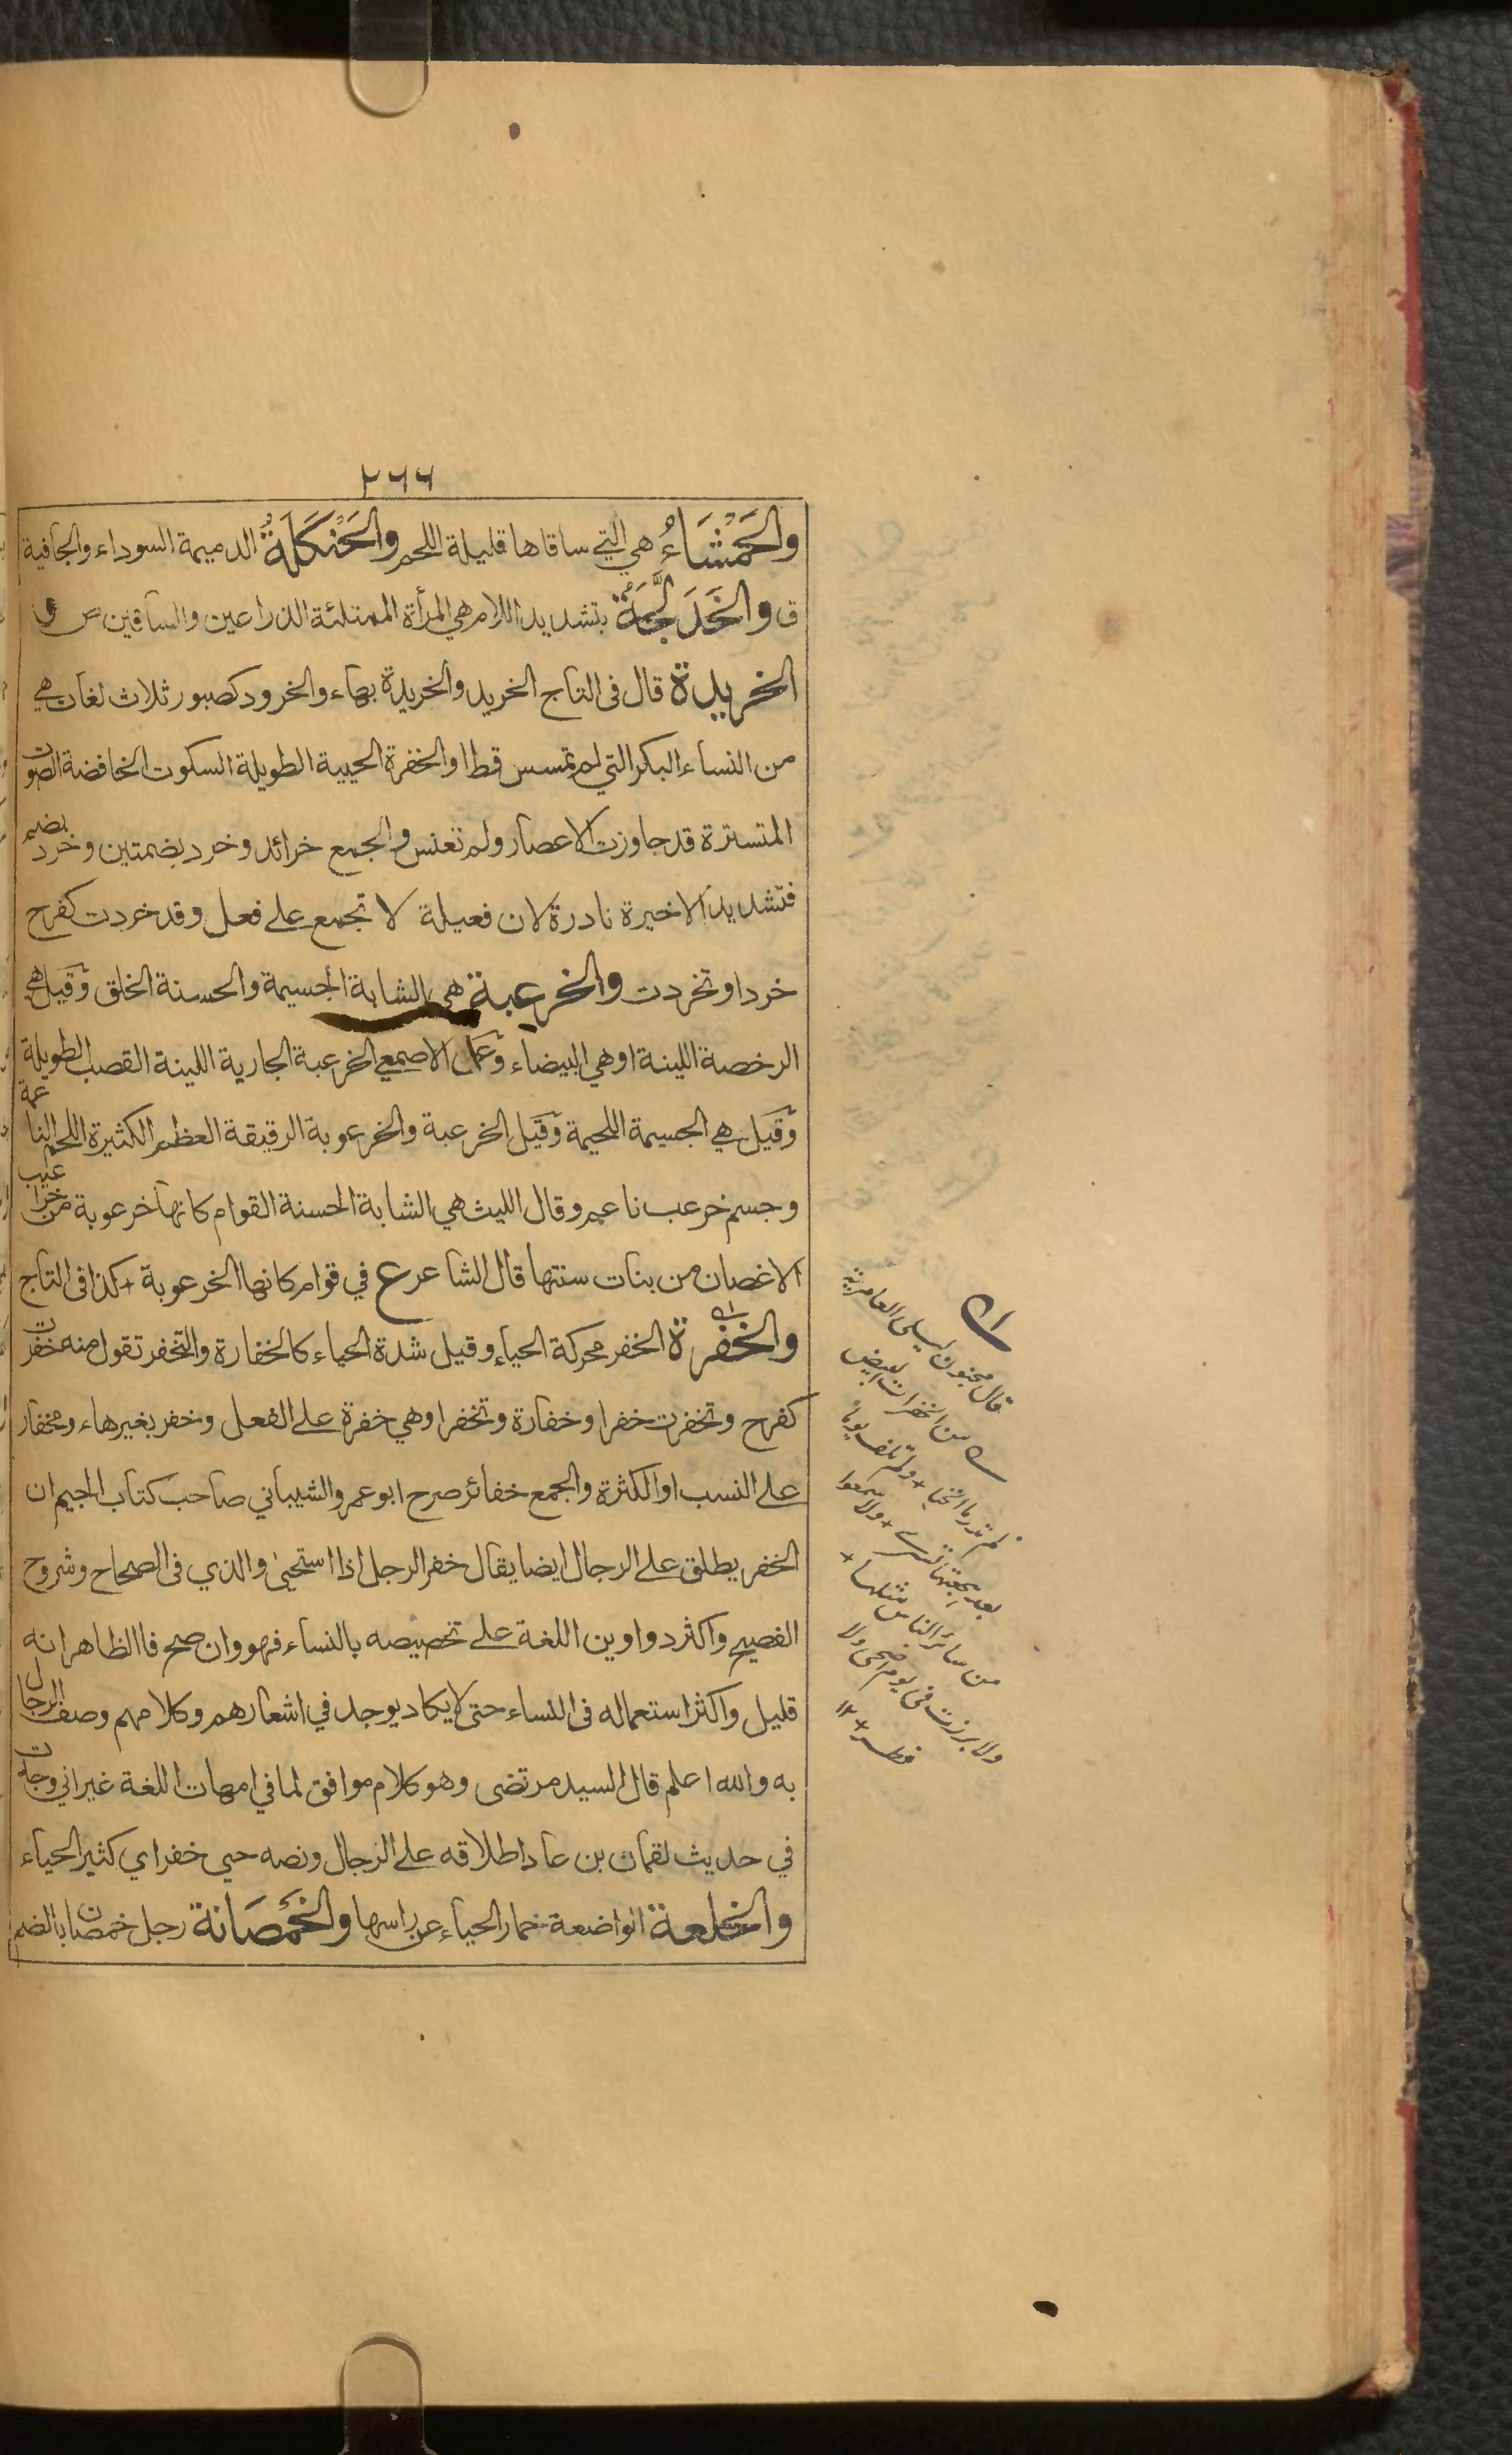 ٢٦٦
والحَمْشَاءُ هي التي ساقاها قليلة اللحم والحَنْكَلَةُ الدميمة السوداء والجافية
ق والخَدَلَّجَةُ بتشديد اللام هي المرأة الممتلئة الذراعين والساقين ص ق و
الخريدة قال فى التاج الخريد والخريدة بهاء والخرود كصبور ثلاث لغات هي
من النساء البكر التي لم تمسس قط او الخفرة الحيية الطويلة السكوت الخافضة الصوت
المتسترة قد جاوزت الاعصار ولم تعنس والجمع خرائد وخرد بضمتين وخرد بضم
فتشديد الاخيرة نادرة لان فعيلة لا تجمع على فعل وقد خردت كفرح
خردا وتخردت والخرعبة هي الشابة الجسيمة والحسنة الخلق وقيل هي
الرخصة اللينة او هي البيضاء وعن الاصمعي الخرعبة الجارية اللينة القصب الطويلة
وقيل هي الجسيمة اللحيمة وقيل الخرعبة والخرعوبة الرقيقة العظم الكثيرة اللحم الناعمة
وجسم خرعب ناعم وقال الليث هي الشابة الحسنة القوام كانها خرعوبة من خراعيب
الاغصان من بنات سنتها قال الشاعر ع في قوام كانها الخرعوبة + كذا فى التاج
والخفرة الخفر محركة الحياء وقيل شدة الحياء كالخفارة والتخفر تقول منه خفرت
كفرح وتخفرت خفرا وخفارة وتخفرا وهي خفرة على الفعل وخفر بغير هاء ومخفار
على النسب او الكثرة والجمع خفائر صرح ابو عمرو الشيباني صاحب كتاب الجيم ان
الخفر يطلق على الرجال ايضا يقال خفر الرجل اذا استحيى والذي فى الصحاح وشروح
الفصيح واكثر دواوين اللغة على تخصيصه بالنساء فهو وان صح فالظاهر انه
قليل واكثر استعماله فى النساء حتى لا يكاد يوجد في اشعارهم وكلامهم وصف الرجال
به والله اعلم قال السيد مرتضى وهو كلام موافق لما في امهات اللغة غير اني وجدت
في حديث لقمان بن عاد اطلاقه على الرجال ونصه حيي خفر اي كثير الحياء
والخلعة الواضعة خمار الحياء عن راسها والخَمصَانة رجل خمصان بالضم
قال مجنون ليلى العامرية
من الخفرات البيض
لم تدر ما الخنا + ولم تلف يوما
بعد هجعتها تسرے + ولا سمعوا
من سائر الناس مثلها +
ولا برزت فى يوم اضحى ولا
فطر + ١٢